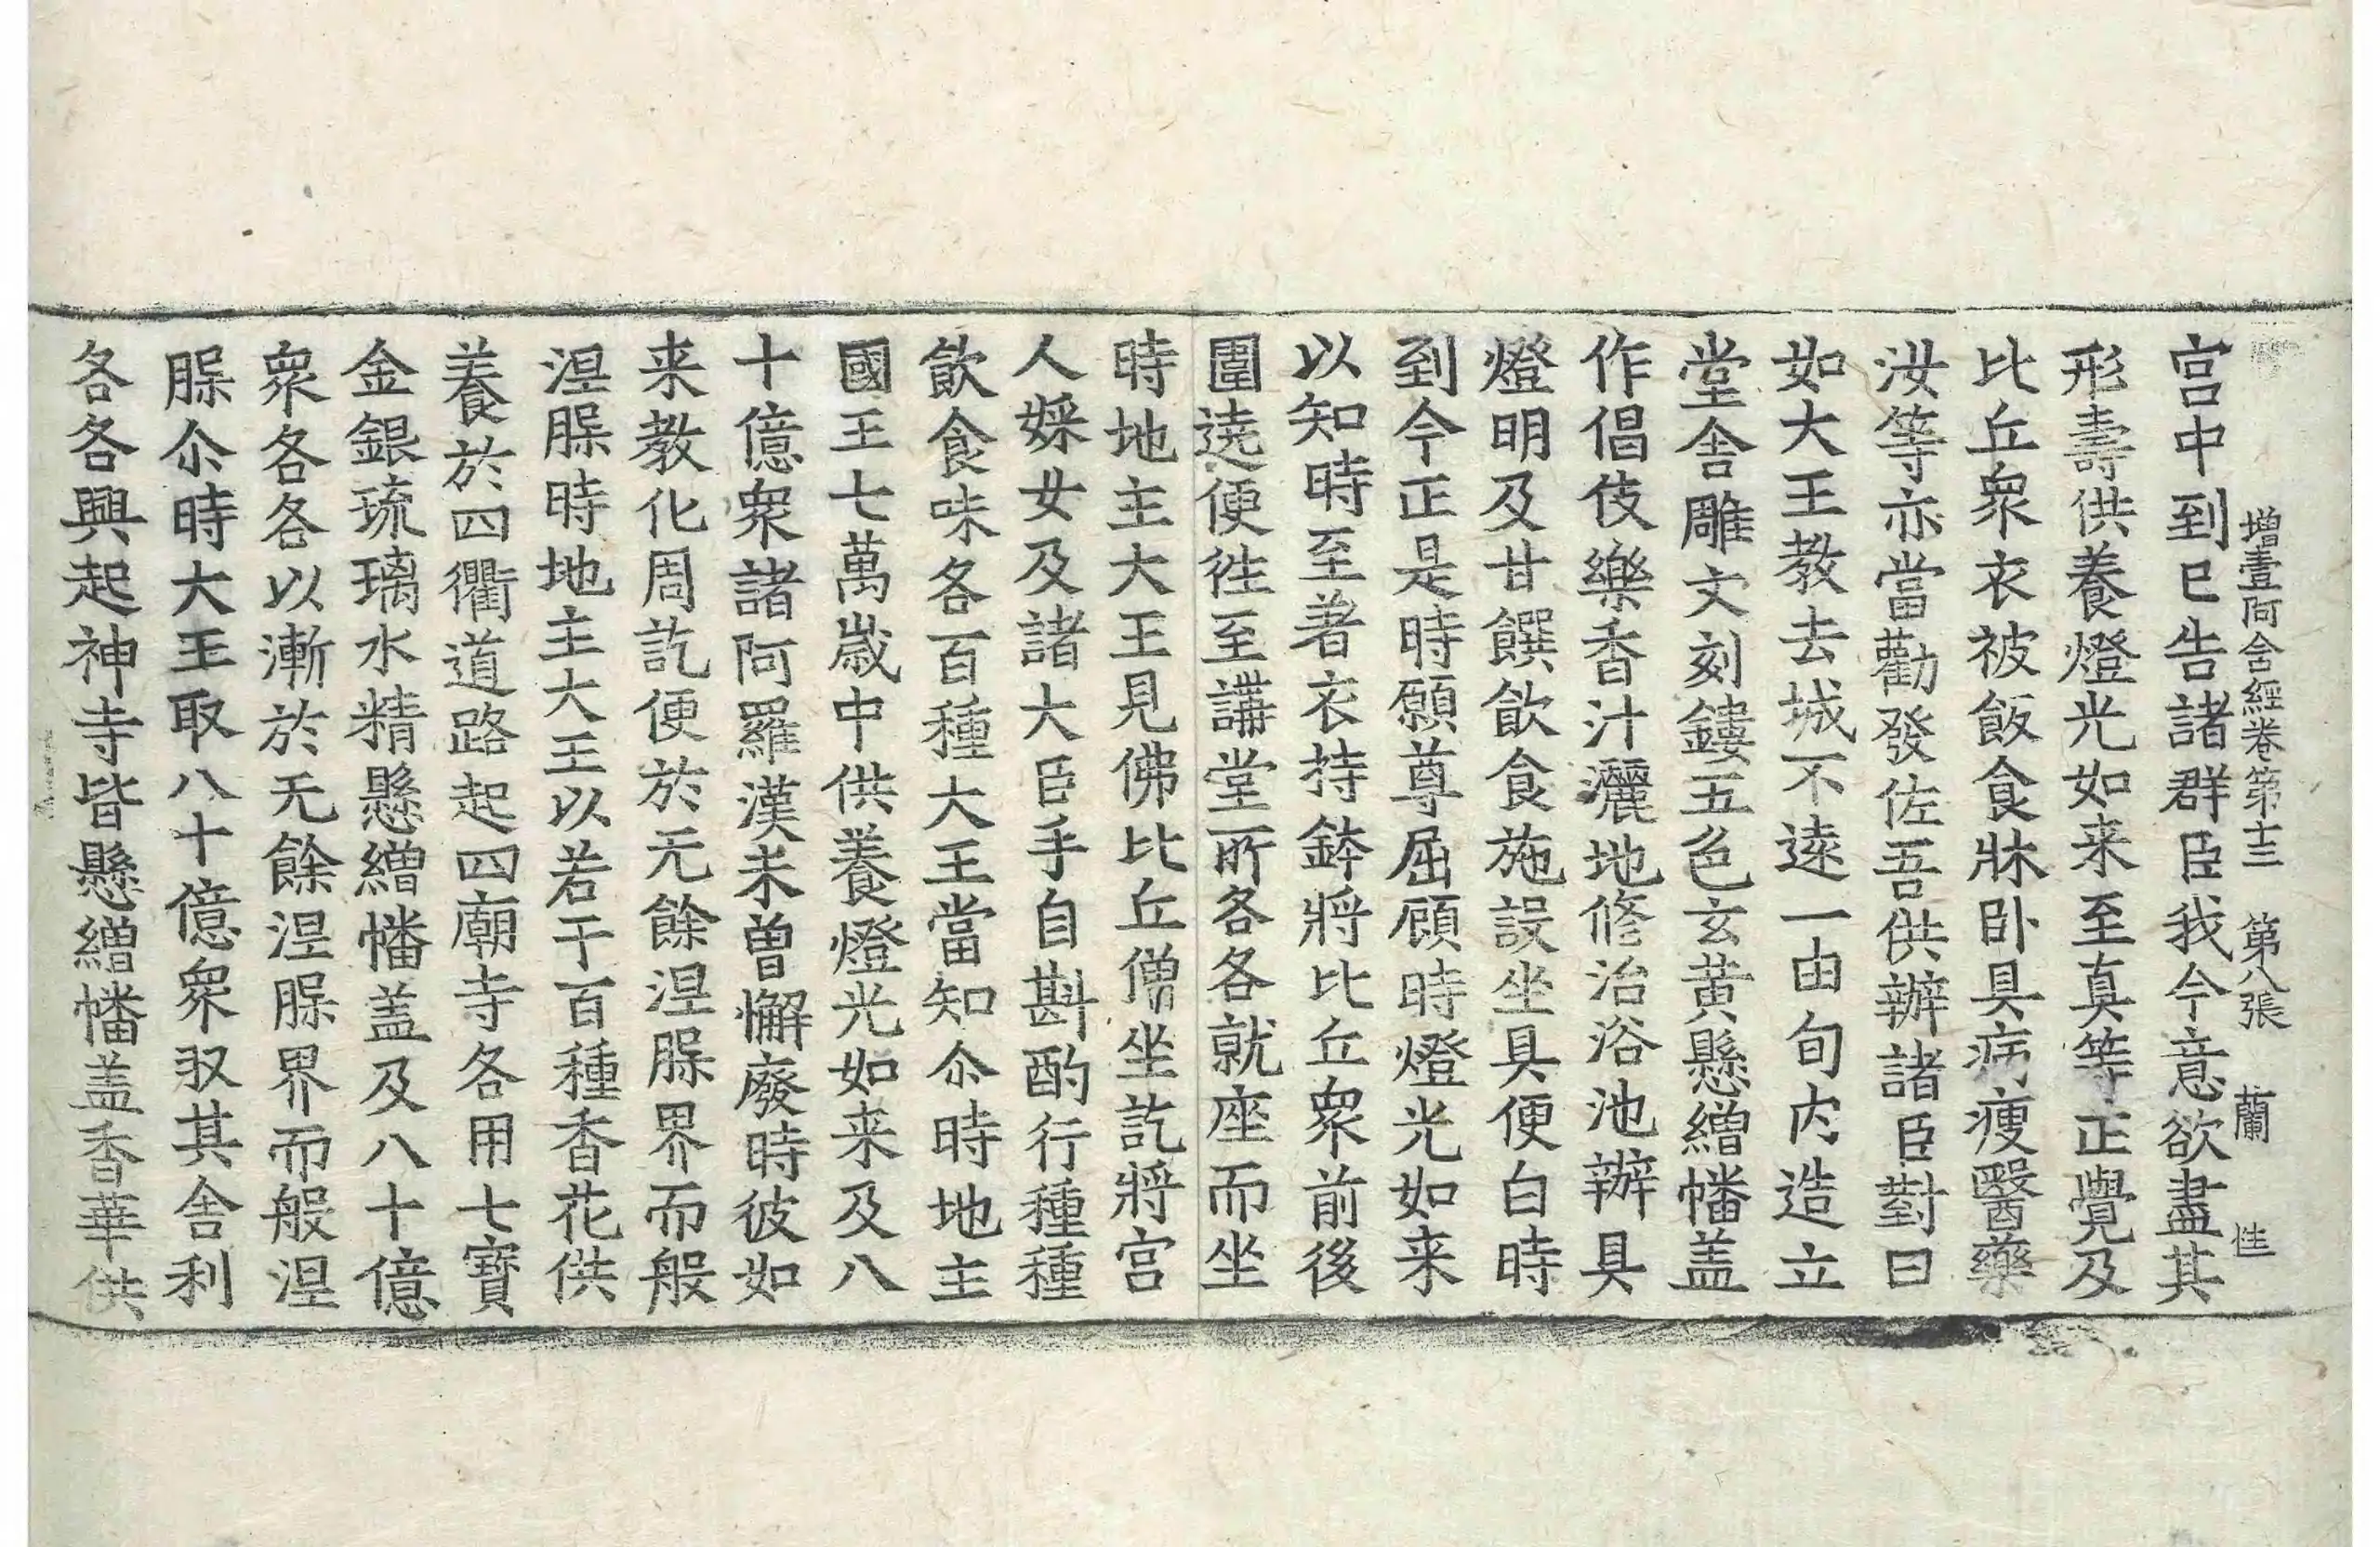 增壹阿含經卷第十三 第八張 蘭 性
宮中到已告諸群臣我今意欲盡其
形壽供養燈光如来至真等正覺及
比丘衆衣被飯食牀卧具病瘦醫藥
汝等亦當勸發佐吾供辦諸臣對曰
如大王教去城不遠一由旬内造立
堂舍雕文刻鏤五色玄黄懸繒幡盖
作倡伎樂香汁灑地修治浴池辦具
燈明及甘饌飲食施設坐具便白時
到今正是時願尊屈顧時燈光如来
以知時至著衣持鉢將比丘衆前後
圍遶便往至講堂所各各就座而坐
時地主大王見佛比丘僧坐訖將宮
人婇女及諸大臣手自斟酌行種種
飲食味各百種大王當知尒時地主
國王七萬歲中供養燈光如来及八
十億衆諸阿羅漢未曾懈廢時彼如
来教化周訖便於无餘涅槃界而般
涅槃時地主大王以若干百種香花供
養於四衢道路起四廟寺各用七寶
金銀琉璃水精懸繒幡盖及八十億
衆各各以漸於无餘涅槃界而般涅
槃尒時大王取八十億衆収其舍利
各各興起神寺皆懸繒幡盖香華供